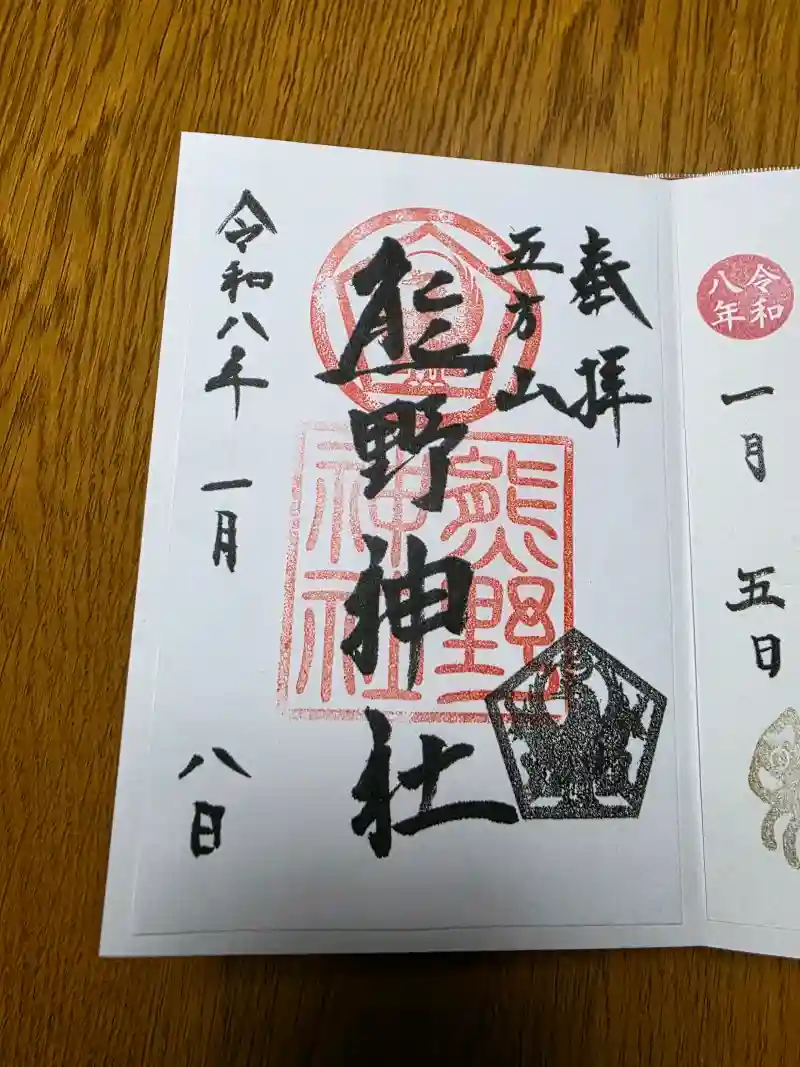 奉拝
五方山
熊野神社
熊野
神社
令和八年 一月 八日
令和
八年
一月 五日